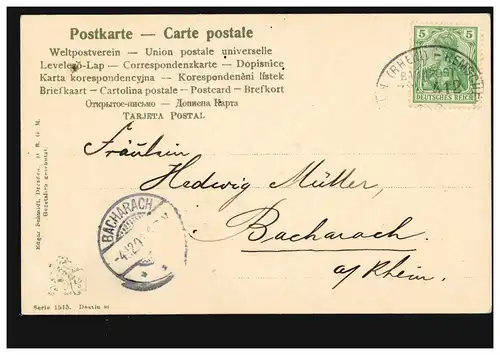 Postkarte — Carte postale
Weltpostverein — Union postale universelle
Levelező-Lap — Correspondenzkarte — Dopisnice
Karta korespondencyjna — Korespondenční lístek
Briefkaart — Cartolina postale — Postcard — Brefkort
Открытое-письмо — Дописна Карта
TARJETA POSTAL
5 5
DEUTSCHES REICH
(RHEIN)
Fräulein
Hedwig Müller,
Bacharach
a/Rhein.
BACHARACH
Edgar Schmidt, Dresden. D. R. G. M.
Gesetzlich geschützt.
Serie 1515. Dessin